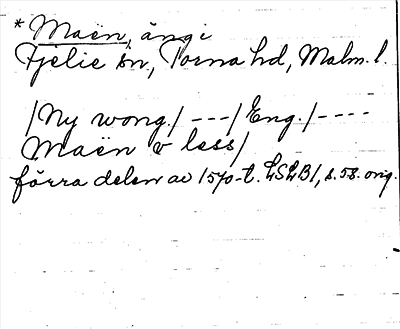 * Maën, ängi
Fjelie sn, Torna hd, Malm. l.
/Ny wong/ --- /Eng./ ----
Maën v less/
förra delen av 1570-t. LSLB1, s. 58. orig.